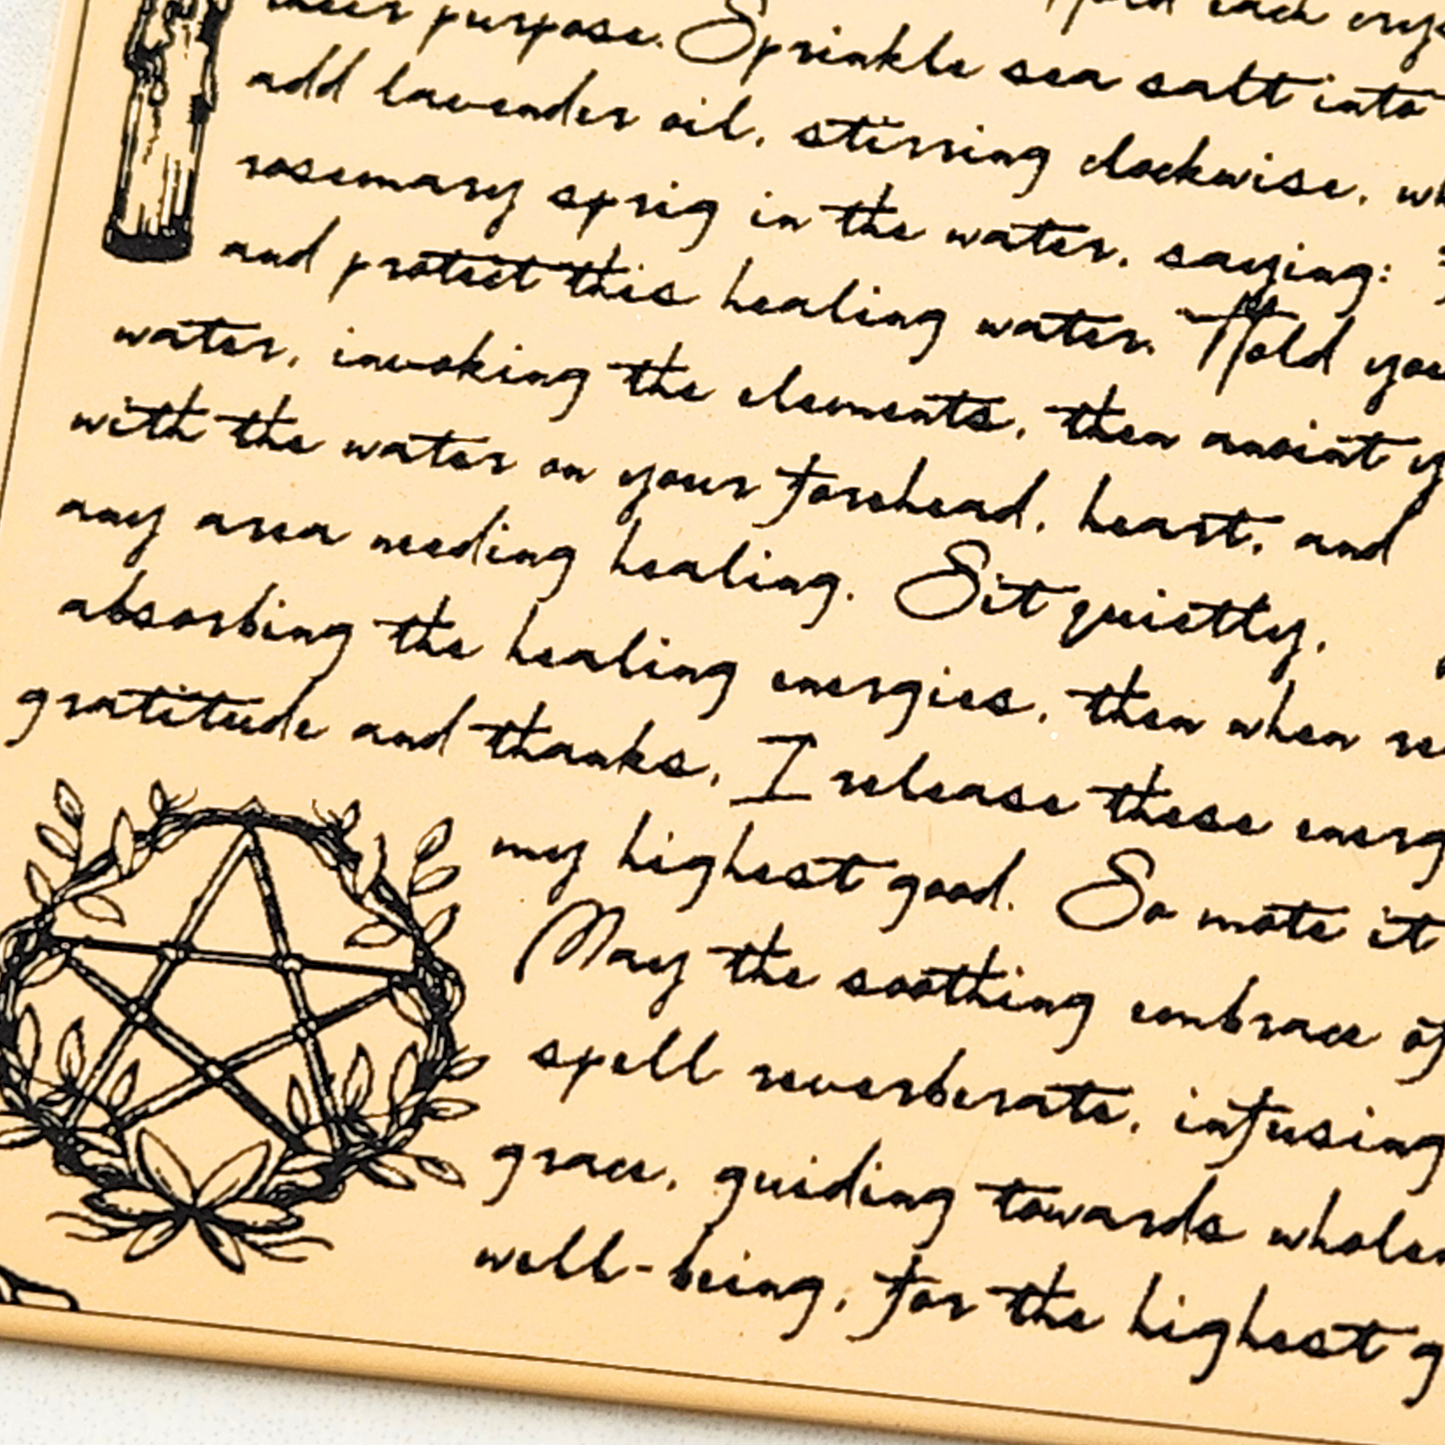 their purpose. Sprinkle sea salt into
add lavender oil, stirring clockwise,
rosemary sprig in the water, saying:
and protect this healing water. Hold
water, invoking the elements, then anoint
with the water on your forehead, heart, and
any area needing healing. Sit quietly,
absorbing the healing energies, then when
gratitude and thanks, I release these
my highest good. So mote it
May the soothing embrace of
spell reverberate, infusing
grace, guiding towards
well-being, for the highest